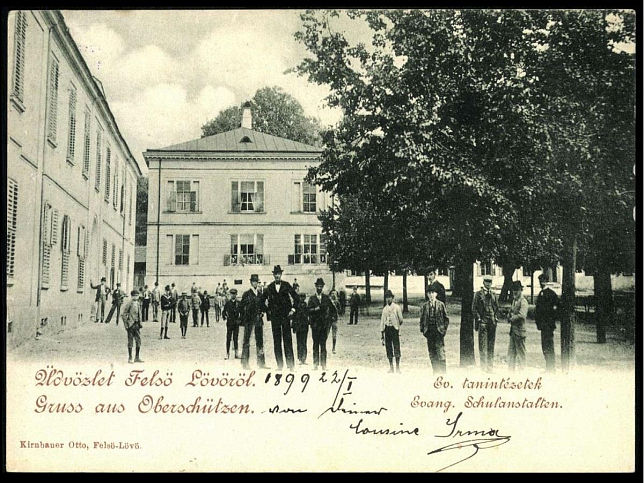 Üdvözlet Felső Lövöröl. 1899 22/I
Ev. tanintézetek
Gruss aus Oberschützen. von Deiner
Evang. Schulanstalten.
Cousine Irma
Kirnbauer Otto, Felsö-Lövö.